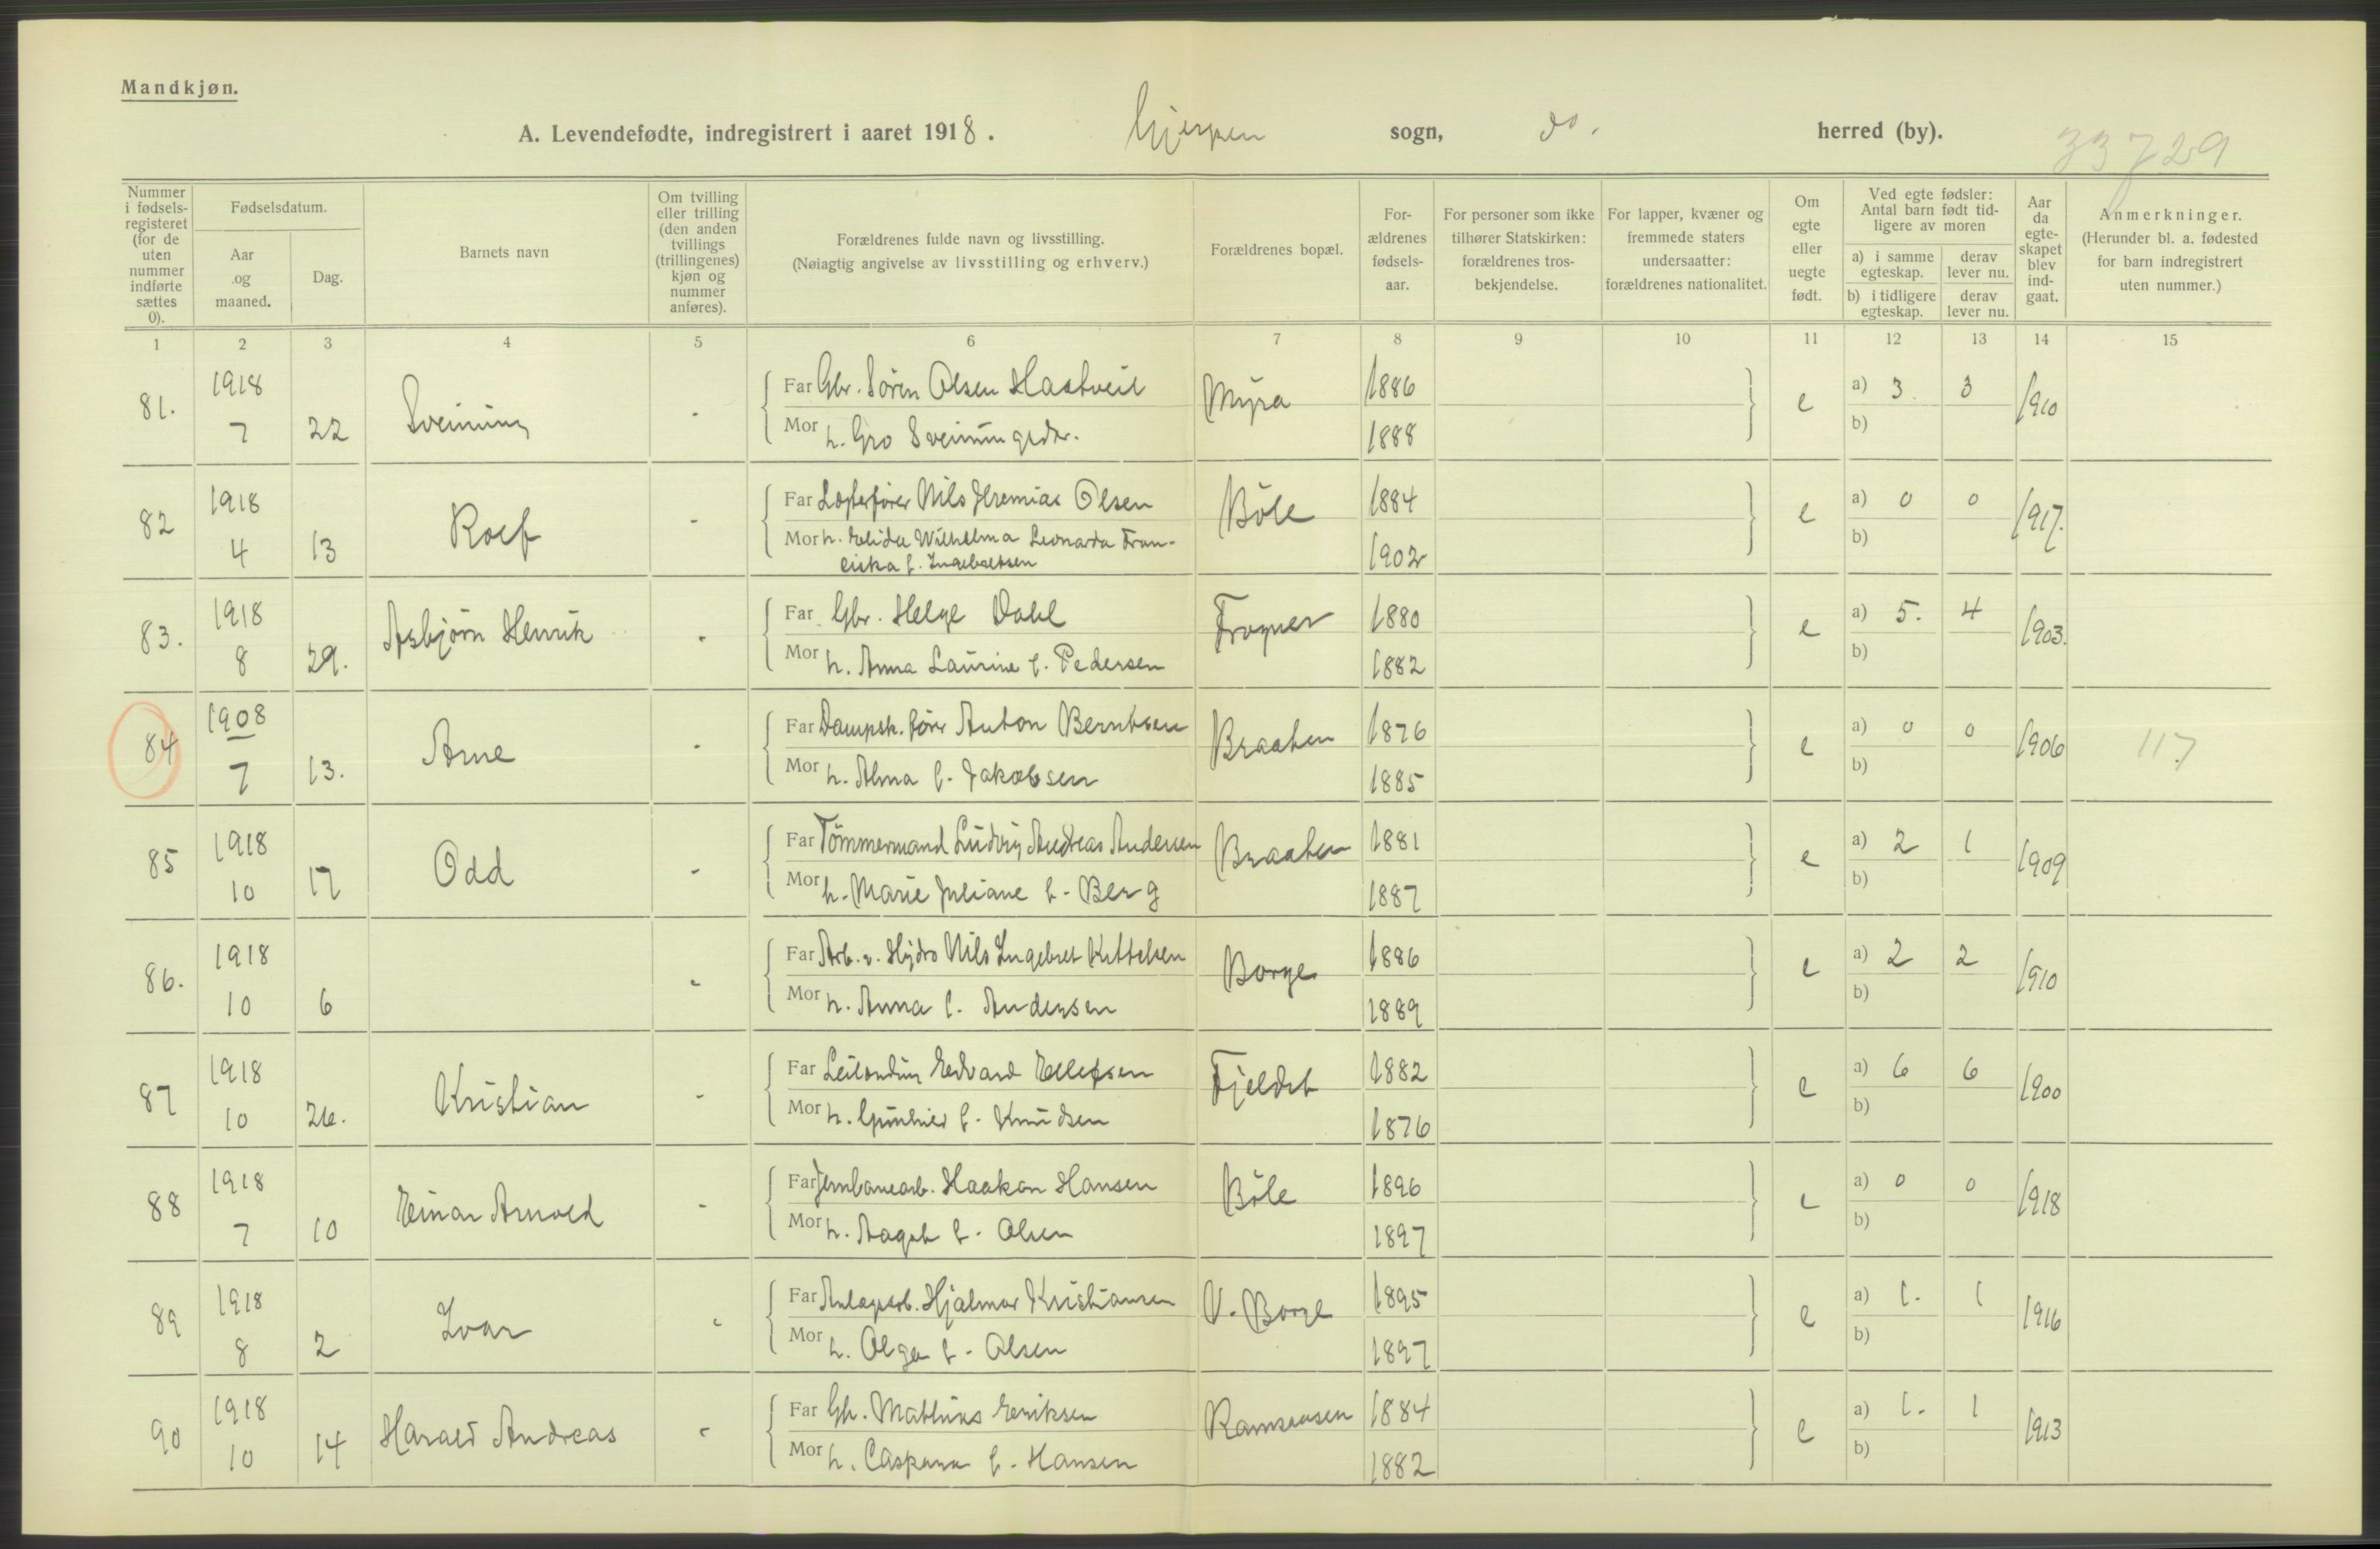 Mandkjøn.
A. Levendefødte, indregistrert i aaret 1918. Gjerpen sogn, do. herred (by).
33729
Nummer i fødselsregisteret (for de uten nummer indførte sættes 0).
Fødselsdatum.
Aar og maaned.
Dag.
Barnets navn
Om tvilling eller trilling (den anden tvillings (trillingenes) kjøn og nummer anføres).
Forældrenes fulde navn og livsstilling.
(Nøiagtig angivelse av livsstilling og erhverv.)
Forældrenes bopæl.
For-ældrenes fødsels-aar.
For personer som ikke tilhører Statskirken: forældrenes tros-bekjendelse.
For lapper, kvæner og fremmede staters undersaatter: forældrenes nationalitet.
Om egte eller uegte født.
Ved egte fødsler: Antal barn født tid-ligere av moren
a) i samme egteskap.
derav lever nu.
b) i tidligere egteskap.
derav lever nu.
Aar da egte-skapet blev ind-gaat.
Anmerkninger.
(Herunder bl. a. fødested for barn indregistrert uten nummer.)
1 2 3 4 5 6 7 8 9 10 11 12 13 14 15
81. 1918 7 22 Sveinung -
Far Gbr. Sören Olsen Hastveit Myra 1886 e a) 3 3 1910
Mor h. Gro Sveinungsdr. 1888 b)
82 1918 4 13 Rolf -
Far Nils Jeremias Olsen Böle 1884 e a) 0 0 1917.
Mor h. Wilhelma Leonarda Fran-
ciska f. Ingebretsen 1902 b)
83. 1918 8 29. Asbjörn Henrik -
Far Gbr. Helge Dahl Frogner 1880 e a) 5. 4 1903.
Mor h. Anna Laurine f. Pedersen 1882 b)
84 1908 7 13. Arne -
Far Dampsk. förer Anton Berntsen Braaten 1876 e a) 0 0 1906 117
Mor h. Alma f. Jakobsen 1885 b)
85 1918 10 17 Odd -
Far Tömmermand Ludvig Andreas Andersen Braaten 1881 e a) 2 1 1909
Mor h. Marie Juliane f. Berg 1887 b)
86. 1918 10 6 -
Far Arb. v. Hydro Nils Ingebret Kittelsen Borge 1886 e a) 2 2 1910
Mor h. Anna f. Andersen 1889 b)
87 1918 10 26. Kristian -
Far Leilending Edvard Ellefsen Fjeldet 1882 e a) 6 6 1900
Mor h. Gunhild f. Knudsen 1876 b)
88 1918 7 10 Einar Arnold -
Far Jernbanearb. Haakon Hansen Böle 1896 e a) 0 0 1918
Mor h. Aagot f. Olsen 1897 b)
89 1918 8 2 Ivar -
Far Anlægsarb. Hjalmar Kristiansen V. Borge 1895 e a) 1. 1 1916
Mor h. Olga f. Olsen 1897 b)
90 1918 10 14 Harald Andreas -
Far Gbr. Mathias Eriksen 1884 e a) 1. 1 1913
Mor h. f. Hansen 1882 b)